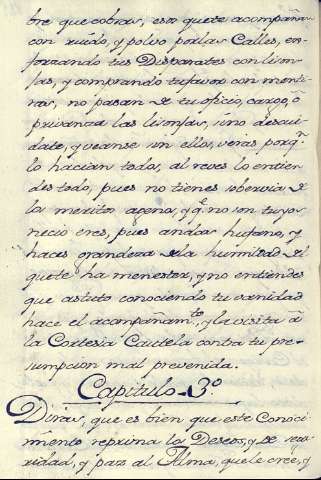 bre que cobras, esso quete acompañan
con ruido, y polvo por las Calles, es-
forzando tus Disparates con lison-
jas, y comprando tu favor con menti-
ras, no pasan de tu oficio, cargo, ò
privanza las lisonjas, sino descui-
date, y veanse sin ellos, verás porq.
lo hacian todos, al reves lo entien
des todo, pues no tienes sobervia de
los meritos agenos, y q.e no son tuyos
necio eres, pues andas hufano, y
haces grandeza de la humildad del
quete ha menester, y no entiendes
que astuto conociendo tu vanidad
hace el acompañam.to, y la visita à
la Cortesia Cautela contra tu pre-
sumpcion mal prevenida.
Capitulo 3.º
Diras, que es bien que este Conoci
miento reprima los Deseos, y De segu
ridad, y paz al Alma, que le cree, y